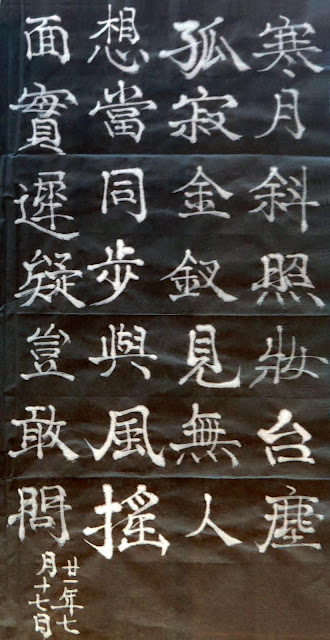 寒月斜照妝台塵
孤寂金釵見無人
想當同步與風搖
面實遲疑豈敢問
廿一年七
月十七日